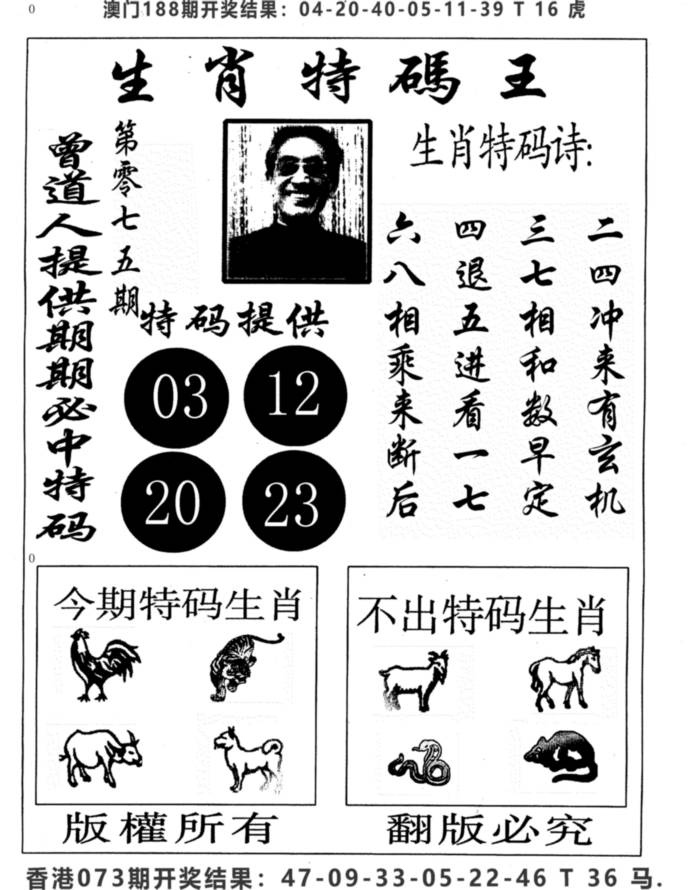 0
澳门188期开奖结果：04-20-40-05-11-39 T 16 虎
生肖特碼王
曾道人提供期期必中特码
第零七五期
生肖特码诗:
二四冲来有玄机
三七相和数早定
四退五进看一七
六八相乘来断后
特码提供
03 12
20 23
0
今期特码生肖
不出特码生肖
版權所有
翻版必究
香港073期开奖结果：47-09-33-05-22-46 T 36 马.